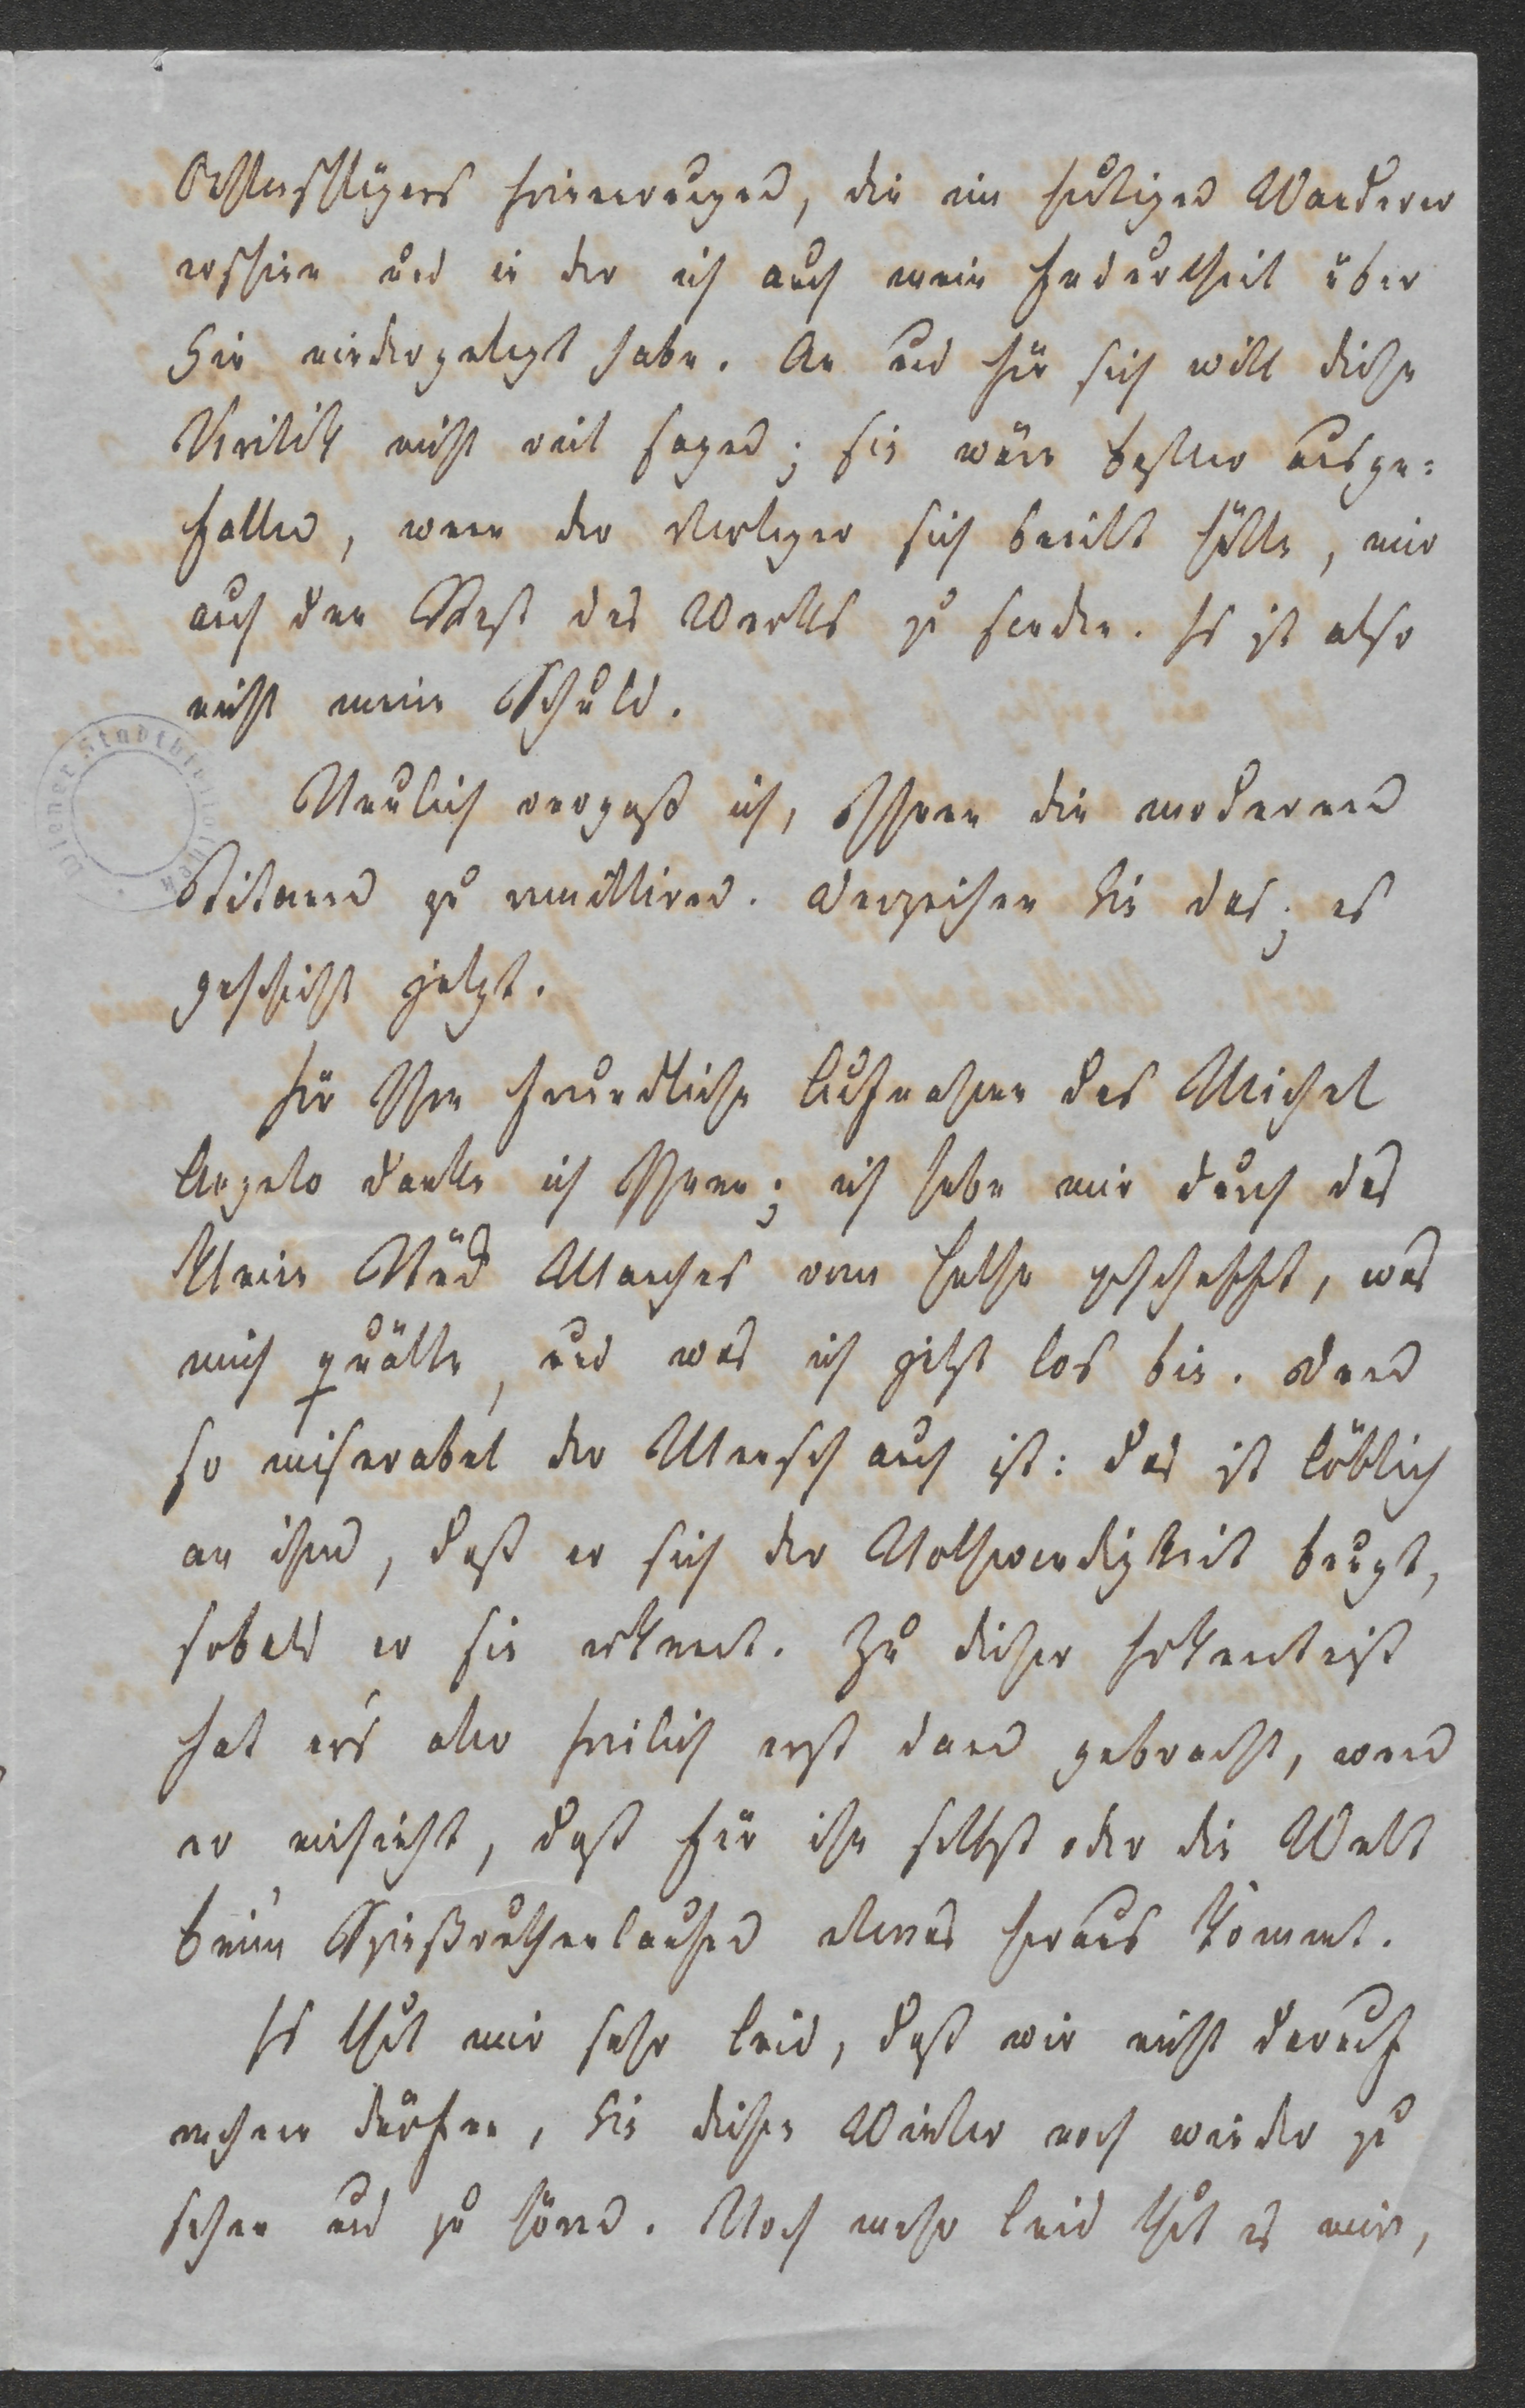 Oehlenschlägers Erinnerungen, die im heutigen Wanderer
erschien und in der ich auch mein Endurtheil über
Sie niedergelegt habe. An und für sich will diese
Kritik nicht viel sagen; sie wäre besser ausge=
fallen, wenn der Verleger sich beeilt hätte, mir
auch den Rest des Werks zu senden. Es ist also
nicht meine Schuld.
Neulich vergaß ich, Ihnen die modernen
Titanen zu remittiren. Verzeihen Sie das; es
geschieht jetzt.
Für Ihre freundliche Aufnahme des Michel
Angelo danke ich Ihnen; ich habe mir durch das
kleine Stück Manches vom Halse geschafft, was
mich quälte, und was ich jetzt los bin. Denn
so miserabel der Mensch auch ist: das ist löblich
an ihm, daß er sich der Nothwendigkeit beugt,
sobald er sie erkennt. Zu dieser Erkenntniß
hat er's aber freilich erst dann gebracht, wenn
er einsieht, daß für ihn selbst oder die Welt
beim Spießruthenlaufen etwas heraus kommt.
Es thut mir sehr leid, daß wir nicht darauf
rechnen dürfen, Sie diesen Winter noch wieder zu
sehen und zu hören. Noch mehr leid thut es mir,
Wiener Stadtbibliothek